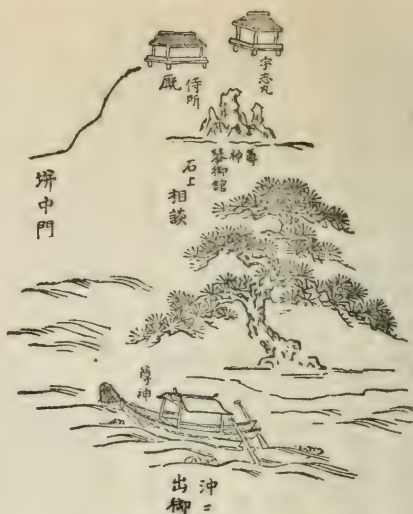 宇志丸
侍所
厩
尊神
琴御舘
石上
相談
塀中門
尊神
沖ニ
出御